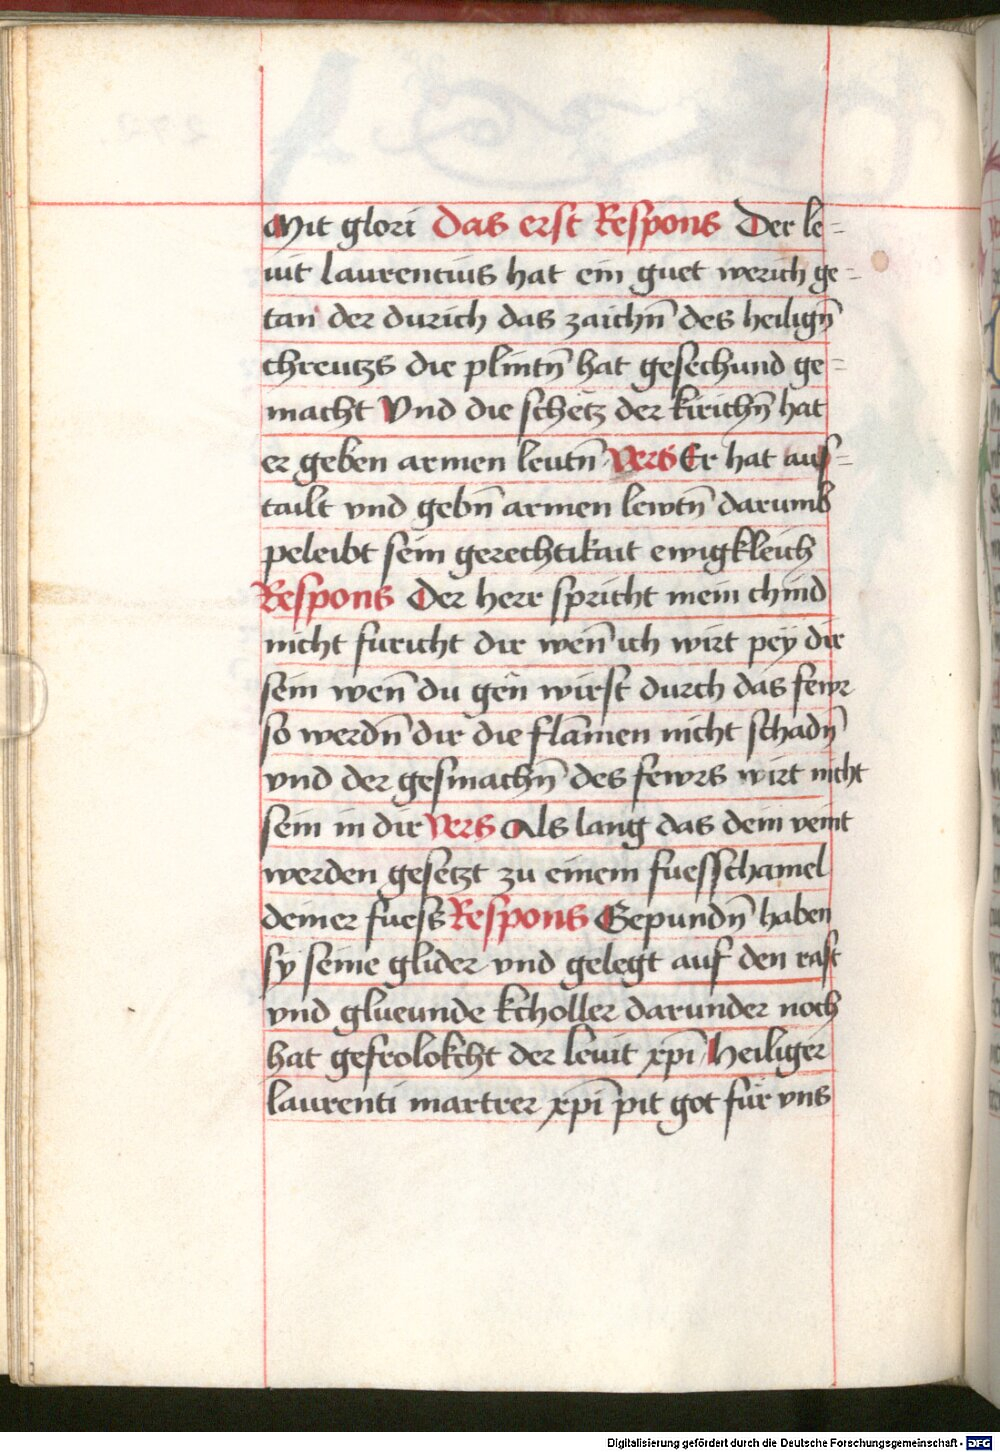 Mit glori das erst Respons Der le=
uit laurentius hat ein guet werich ge=
tan der durich das zaichn̄ des heilign̄
chreutzs die plintn̄ hat gesechund ge=
macht Vnd die schetz der kirichn̄ hat
er geben armen leutn̄ Vers Er hat aus=
tailt vnd gebn̄ armen lewtn̄ darumb
peleibt sein gerechtikait ewigkleich
Respons Der herr spricht mein chind
nicht furicht dir wen̄ ich wirt pey dir
sein wen̄ du gen wirst durch das fewr
so werdn̄ dir die flāmen nicht schadn̄
vnd der gesmachn̄ des fewrs wirt nicht
sein in dir Vers Als lang das dein veint
werden gesetzt zu einem fuesschamel
deiner fuess Respons Gepundn̄ haben
sy seine glider vnd gelegt auf den rast
vnd glueunde kcholler darunder noch
hat gefrolokcht der leuit xp̄i Heiliger
laurenti martrer xp̄i pit got für vns
Digitalisierung gefördert durch die Deutsche Forschungsgemeinschaft - DFG